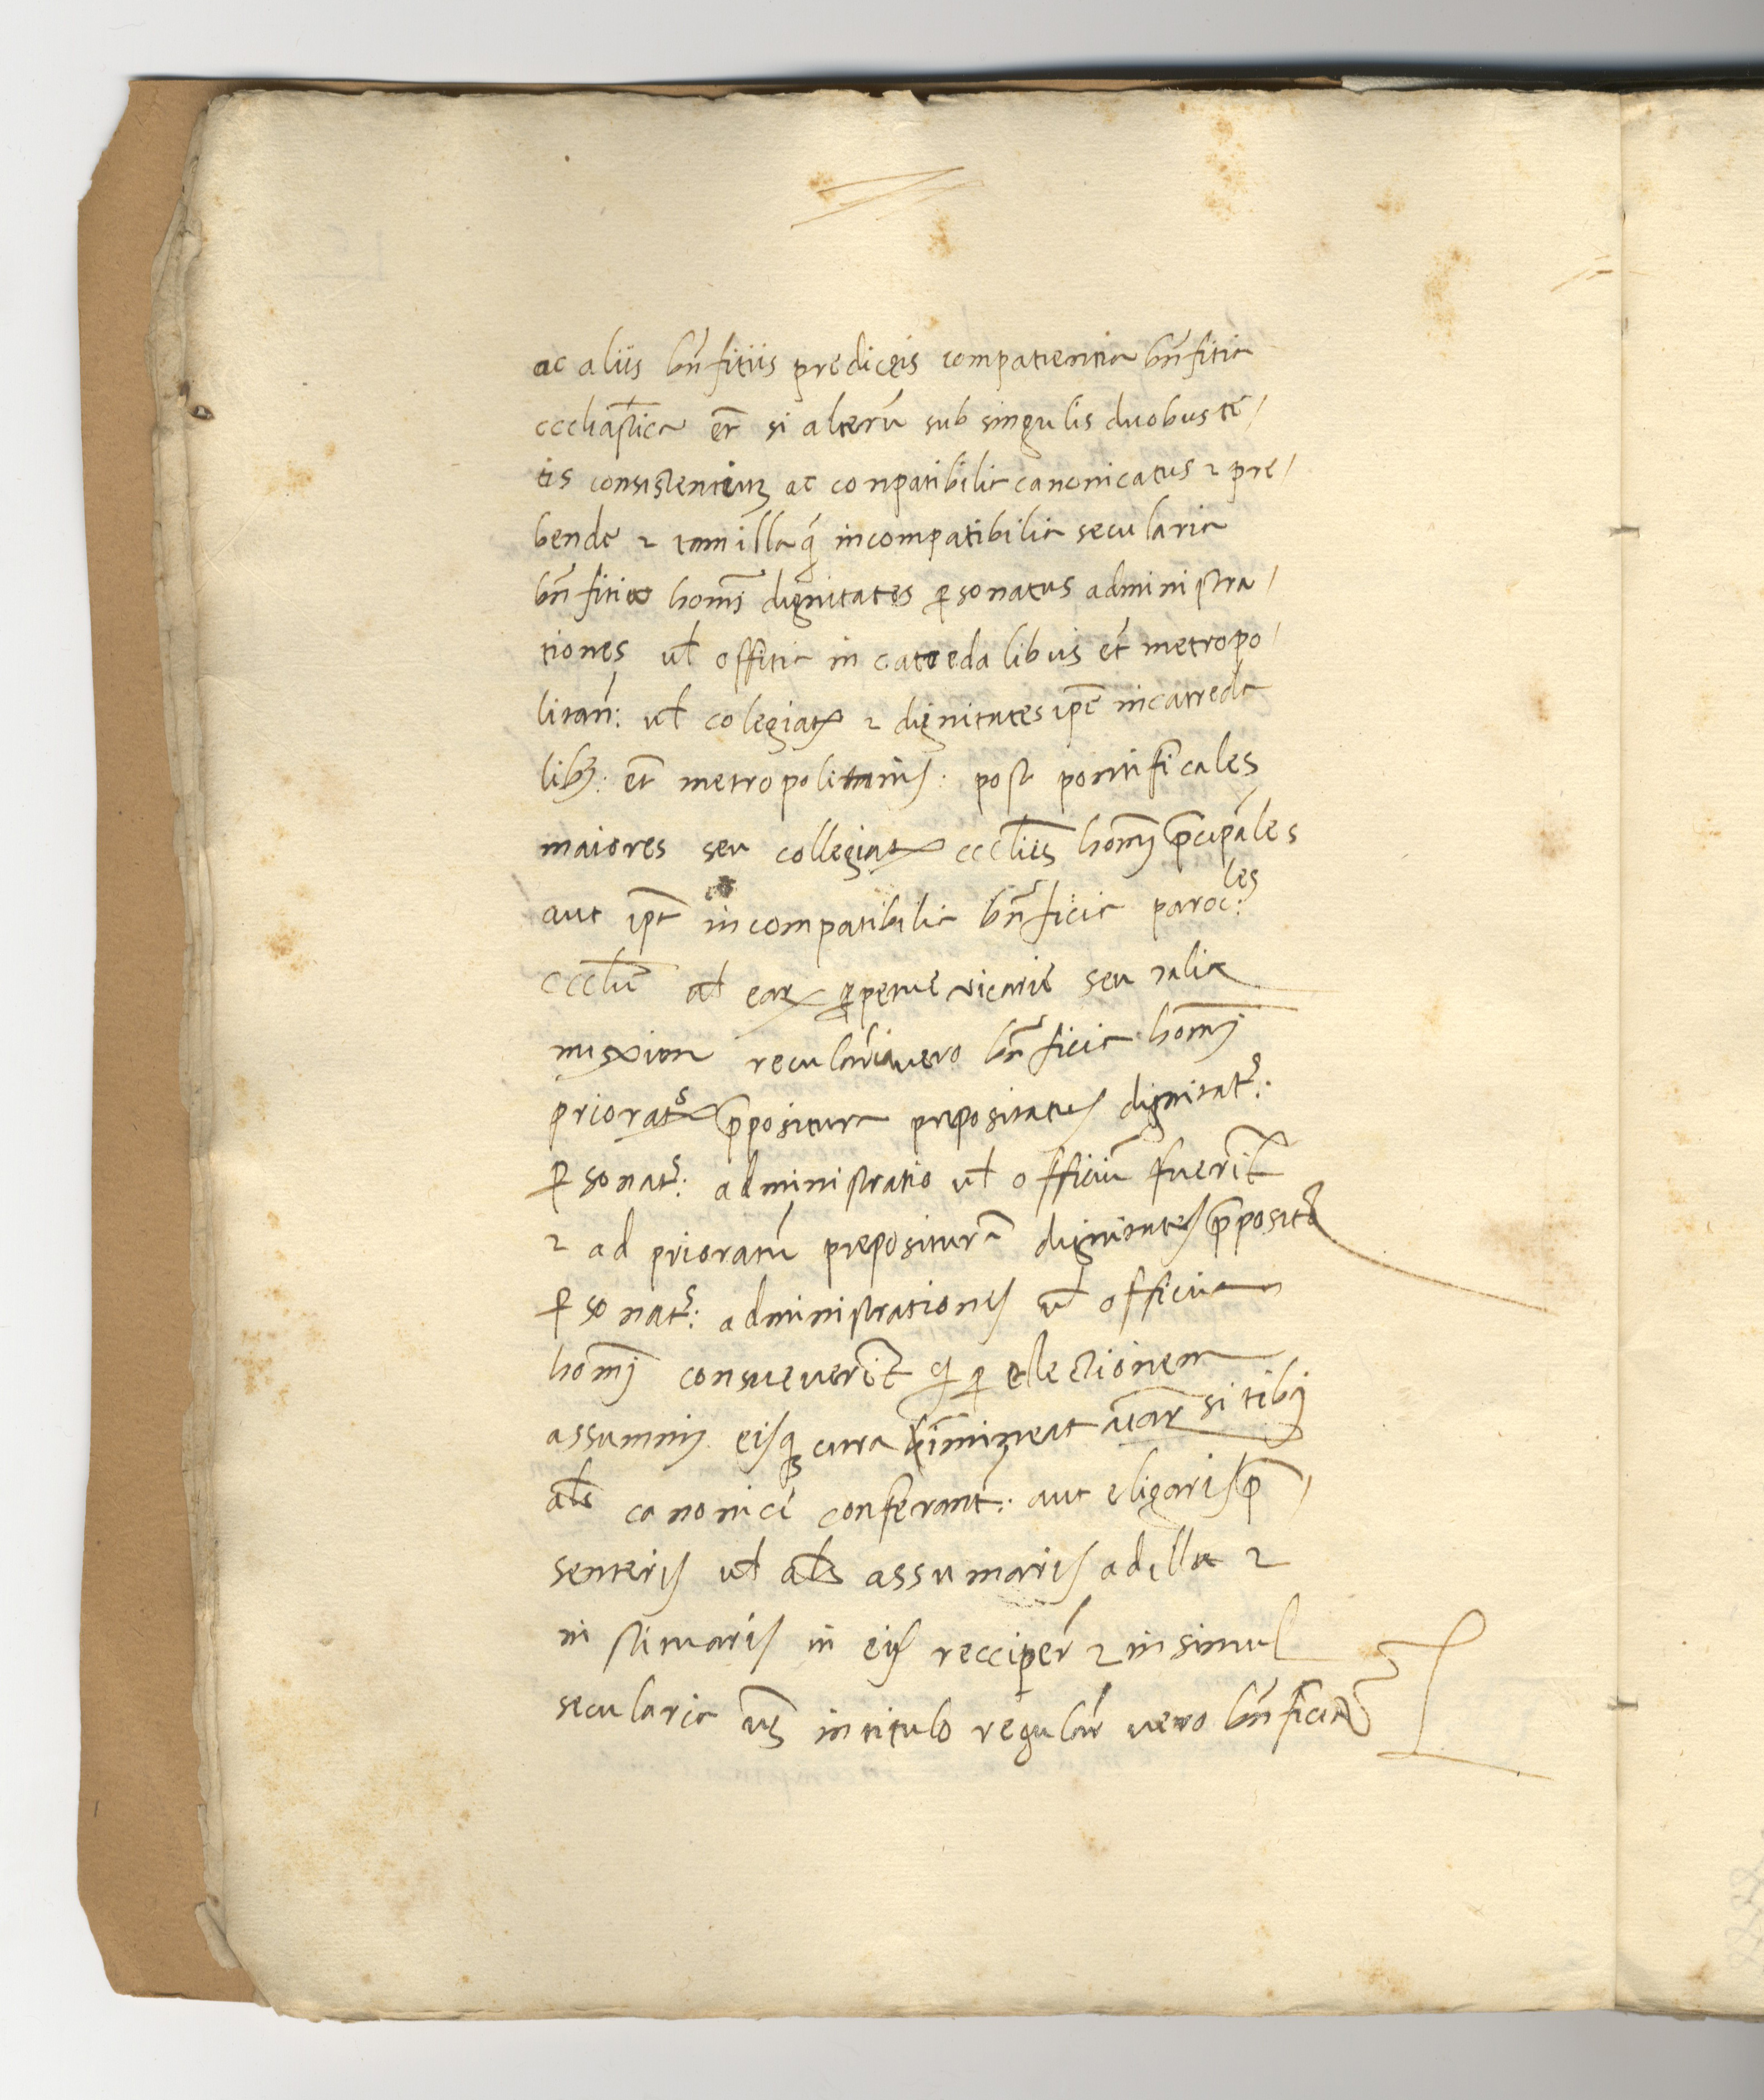 ac aliis bn̄fitiis predictis compatientia bn̄fitia
eccl̄iastica et̄ si alterū sub singulis duobus tē/
tis consistentium ac conpatibilia canonicatus ⁊ pre/
bende ⁊ tam illa q̄ incompatibilia secularia
bn̄fitia homōi dignitates ꝑsonatus administra/
tiones vl̄ offitia in catredalibus et̄ metropo/
litan̄: vl̄ colegiatꝝ ⁊ dignitates ip̄e in catreda
libꝫ: et̄ metropolitanis: post pontificales
maiores seu collegiatꝝ eccl̄iis homōi p̄cipales
aut ip̄a incompatibilia bn̄ficia parocles:
eccl̄ie al̄ earꝝ ꝑpetue vicarie seu talia
mixtim regularia vero bn̄ficia homōi
prioratꝰ p̄positura prepositatus dignitatꝰ:
ꝑsonatꝰ: administratio vl̄ officiū fuerit̄
⁊ ad prioratū prepositurā dignitates p̄posito
ꝑsonatꝰ: administrationes vl̄ officia
homōi consueverit̄ q̄ ꝑ ellectionem
assumi eisqꝫ cura īmineat aīar̄ si tibi
al̄s canonicē conferant̄: aut eligaris p̄/
senteris vl̄ al̄s assumaris ad illa ⁊
in stituaris in eis reccipēr ⁊ insimul
secularia vꝫ in titulo regular̄ vero bn̄ficia